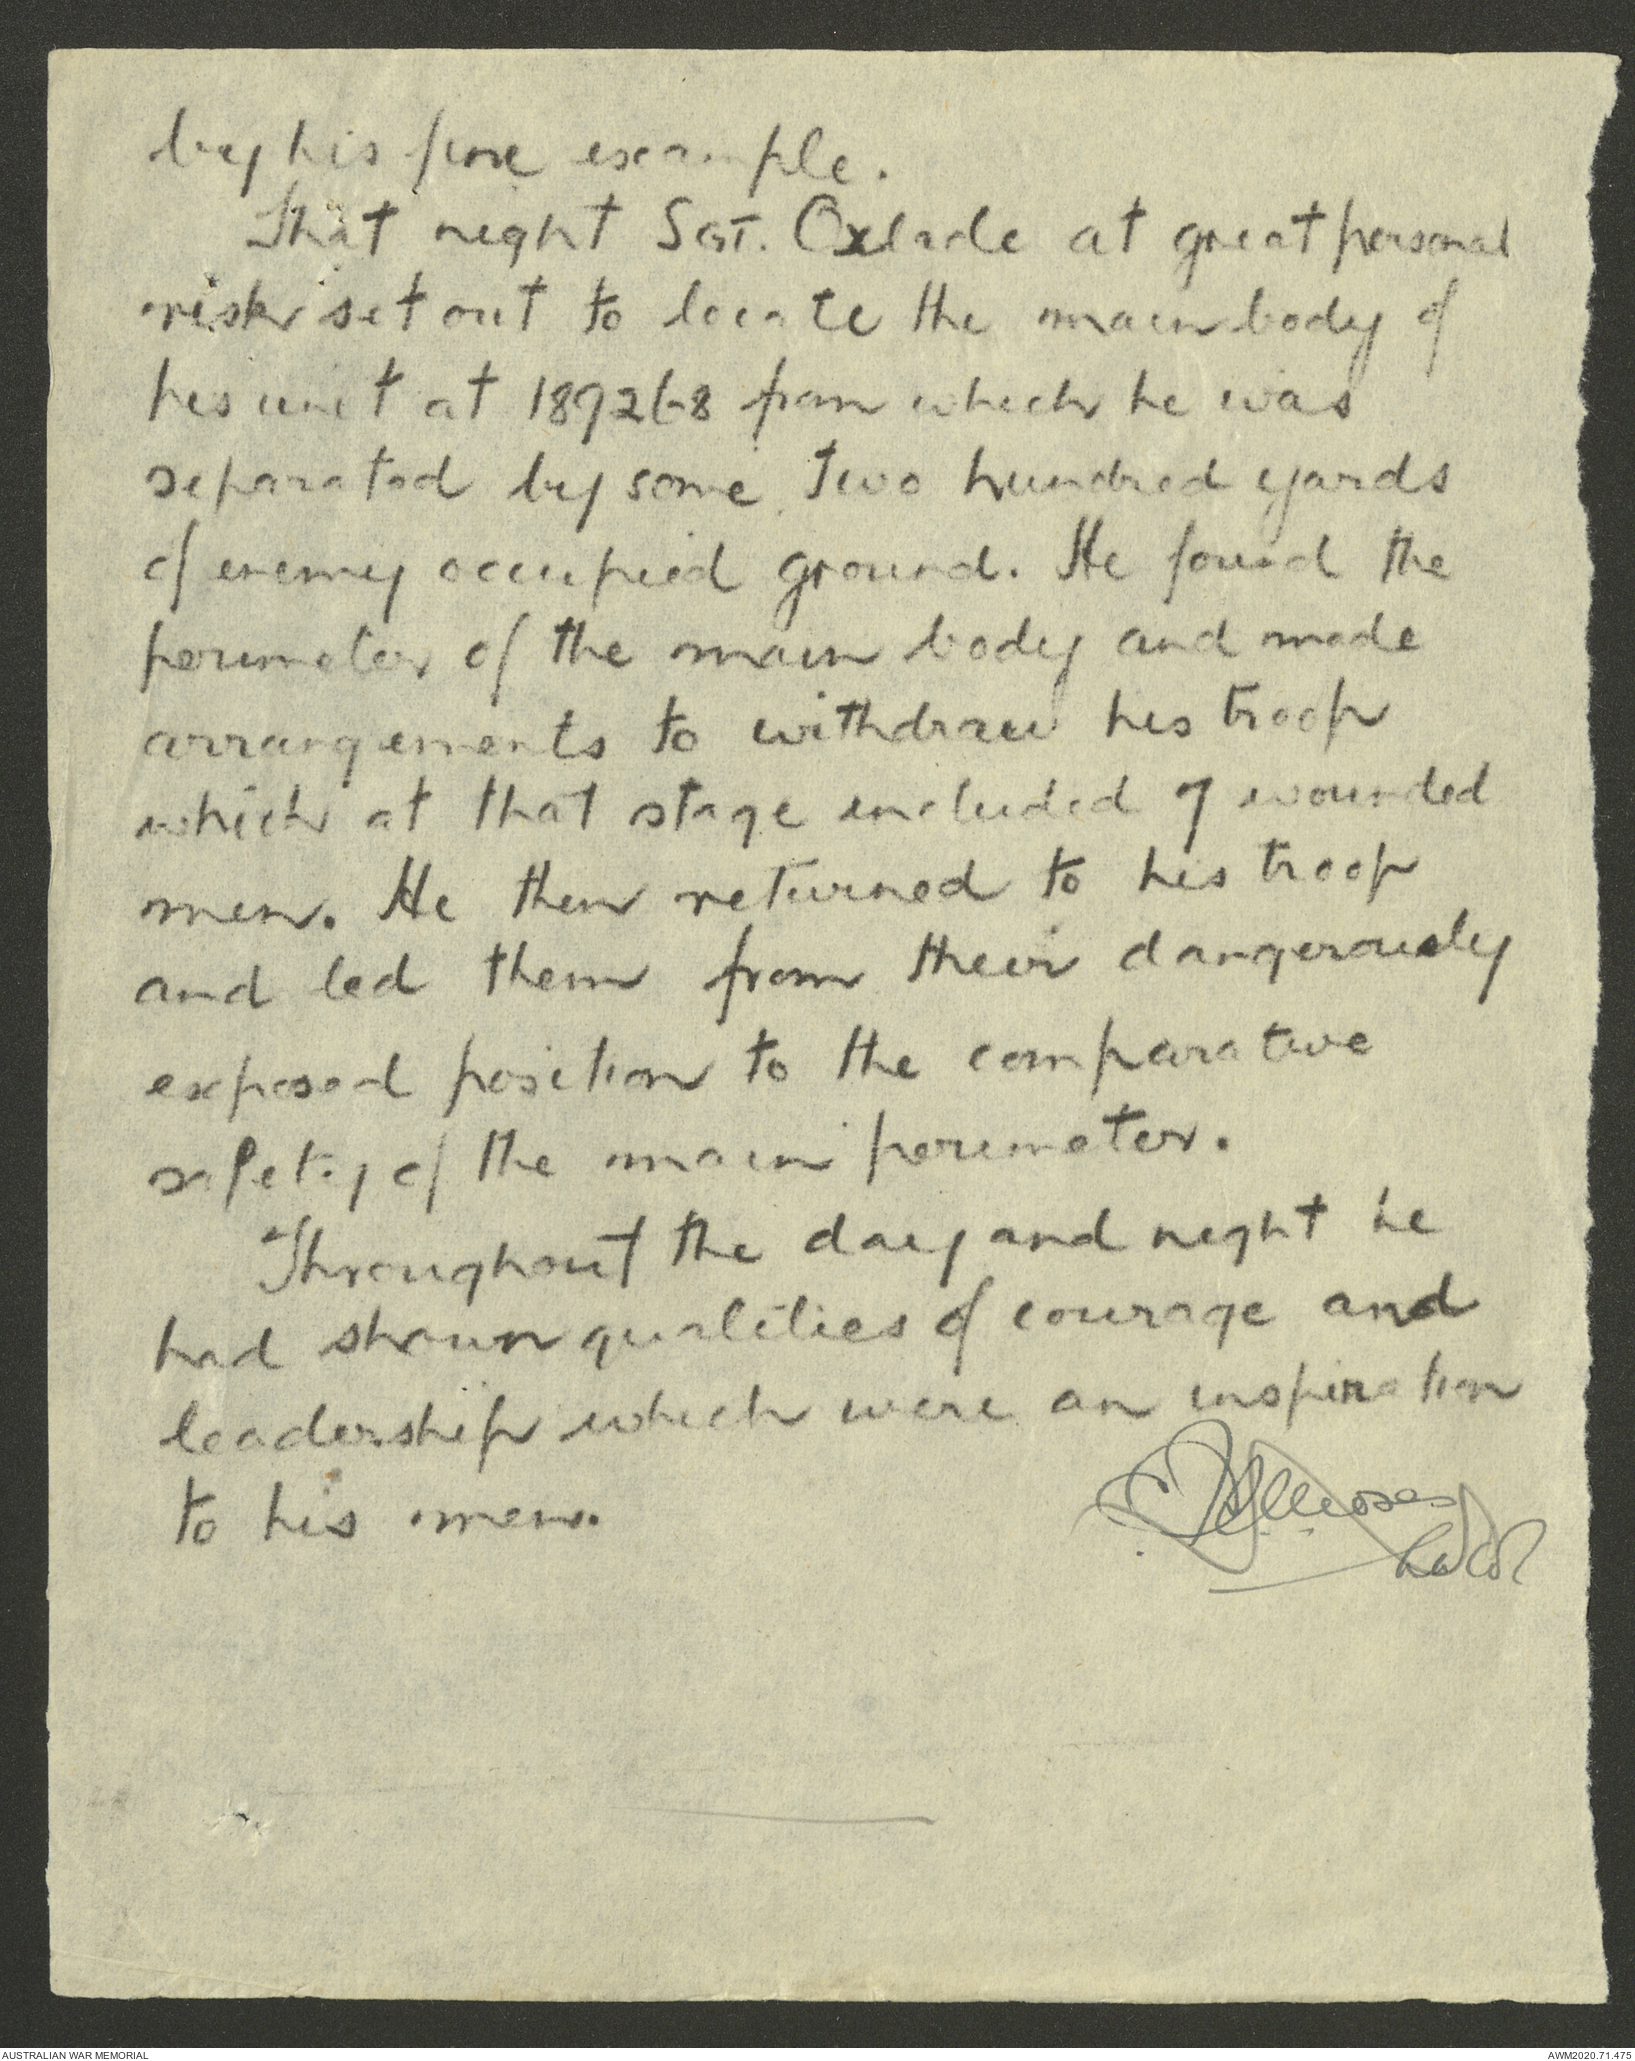 by his fine example.
That night Sgt. Oxlade at great personal
risk set out to locate the main body of
his unit at 189268 from which he was
separated by some two hundred yards
of enemy occupied ground. He found the
perimeter of the main body and made
arrangements to withdraw his troop
which at that stage included 7 wounded
men. He then returned to his troop
and led them from their dangerously
exposed position to the comparative
safety of the main perimeter.
Throughout the day and night he
had shown qualities of courage and
leadership which were an inspiration
to his men.
Moses
Lt Col
AUSTRALIAN WAR MEMORIAL
AWM2020.71.475